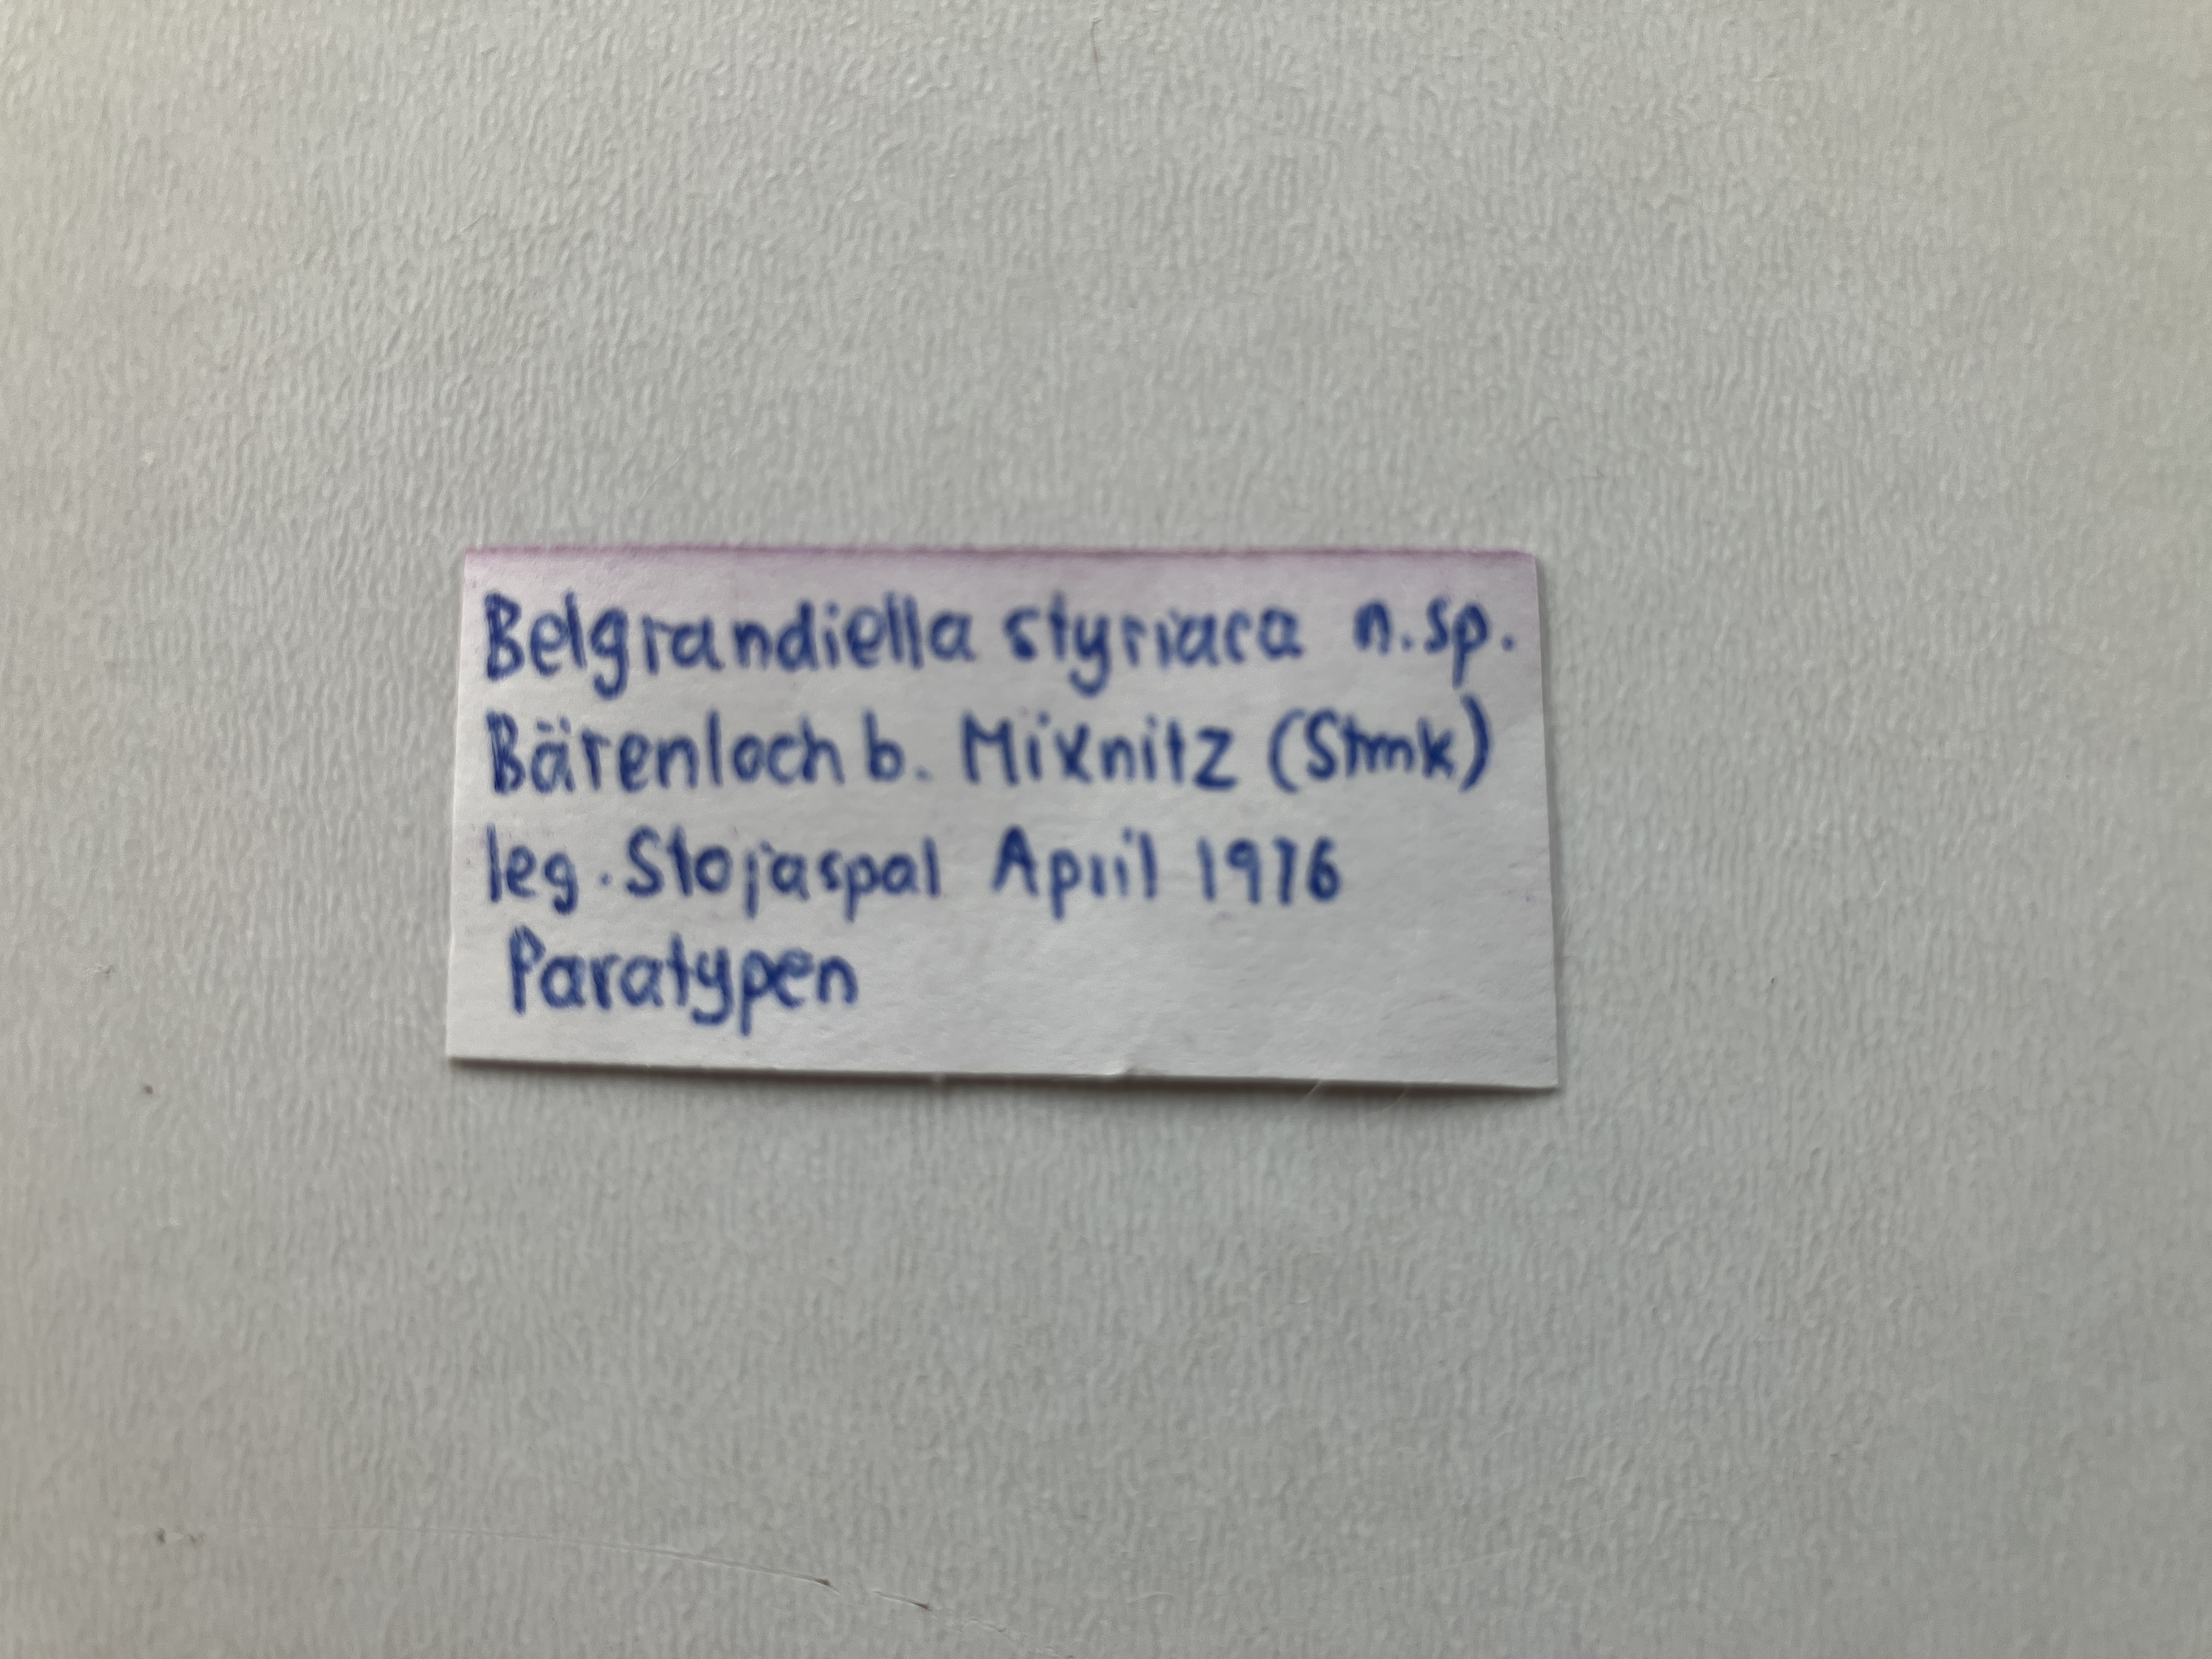 Belgrandiella styriaca n.sp.
Bärenloch b. Mixnitz (Stmk)
leg. Stojaspal April 1976
Paratypen